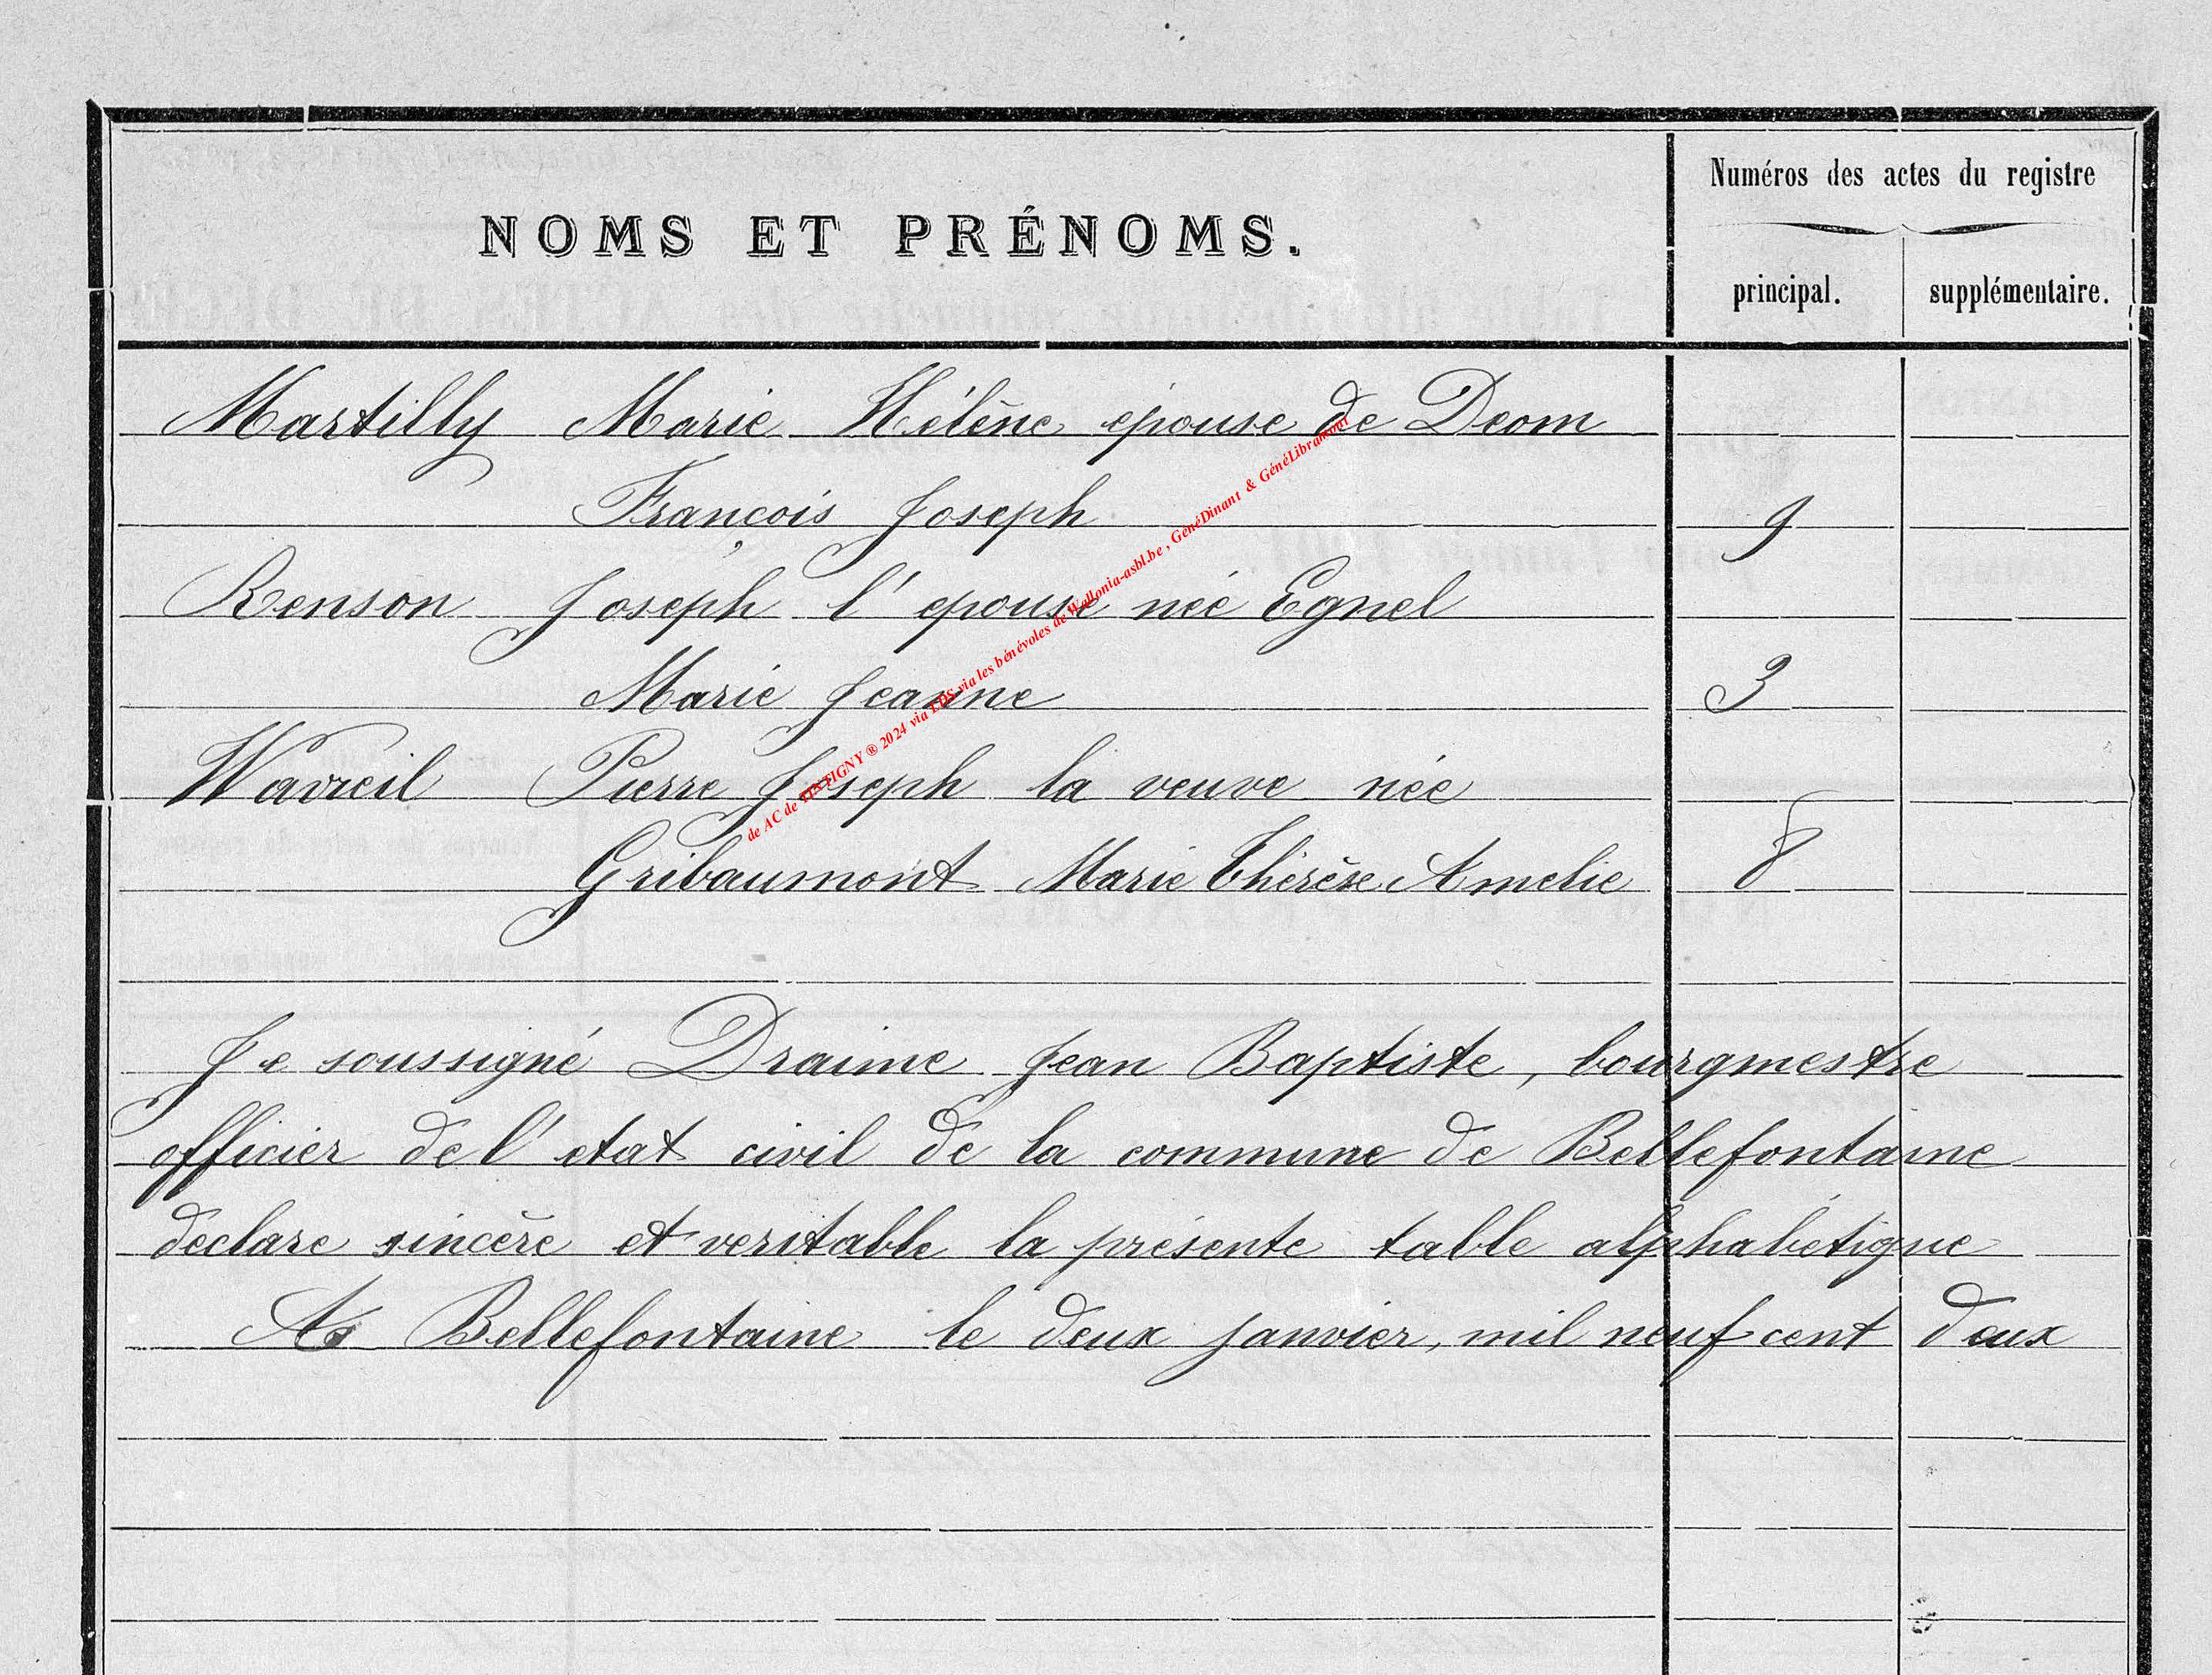 Numéros des actes du registre
NOMS ET PRÉNOMS.
principal. supplémentaire.
Martilly Marie Hélène epouse de Deom
François Joseph 9
Renson Joseph l'epouse née Egnel
Marie Jeanne 3
Wavreil Pierre Joseph la veuve née
Gribaumont Marie Thérèse Amelie 8
Je soussigné Draime Jean Baptiste, bourgmestre
officier de l'etat civil de la commune de Bellefontaine
déclare sincère et veritable la présente table alphabétique
A Bellefontaine le deux janvier, mil neuf cent deux
de AC de TINTIGNY ® 2024 via LDS via les bénévoles de Wallonia-asbl.be , GénéDinant & GénéLibramont